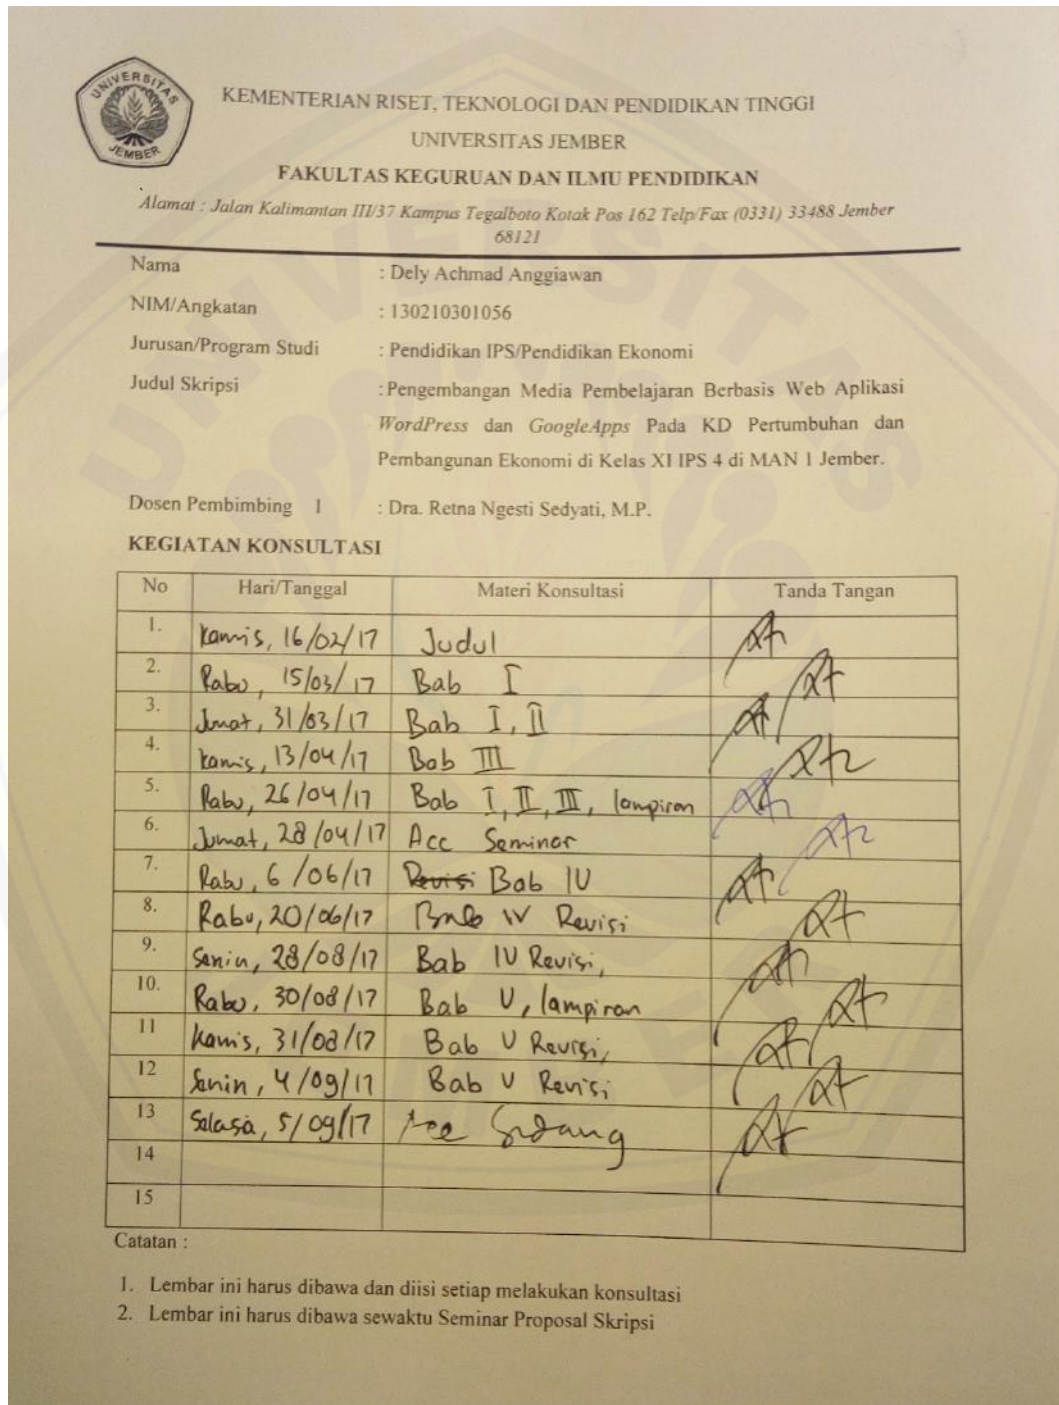 UNIVERSITAS
JEMBER
KEMENTERIAN RISET, TEKNOLOGI DAN PENDIDIKAN TINGGI
UNIVERSITAS JEMBER
FAKULTAS KEGURUAN DAN ILMU PENDIDIKAN
Alamat : Jalan Kalimantan III/37 Kampus Tegalboto Kotak Pos 162 Telp/Fax (0331) 33488 Jember
68121
Nama : Dely Achmad Anggiawan
NIM/Angkatan : 130210301056
Jurusan/Program Studi : Pendidikan IPS/Pendidikan Ekonomi
Judul Skripsi : Pengembangan Media Pembelajaran Berbasis Web Aplikasi
WordPress dan GoogleApps Pada KD Pertumbuhan dan
Pembangunan Ekonomi di Kelas XI IPS 4 di MAN 1 Jember.
Dosen Pembimbing I : Dra. Retna Ngesti Sedyati, M.P.
KEGIATAN KONSULTASI
No Hari/Tanggal Materi Konsultasi Tanda Tangan
1. Kamis, 16/02/17 Judul
2. Rabu, 15/03/17 Bab I
3. Jumat, 31/03/17 Bab I, II
4. Kamis, 13/04/17 Bab III
5. Rabu, 26/04/17 Bab I, II, III, lampiran
6. Jumat, 28/04/17 Acc Seminar
7. Rabu, 6/06/17 Revisi Bab IV
8. Rabu, 20/06/17 Bab IV Revisi
9. Senin, 28/08/17 Bab IV Revisi,
10. Rabu, 30/08/17 Bab V, lampiran
11 Kamis, 31/08/17 Bab V Revisi,
12 Senin, 4/09/17 Bab V Revisi
13 Selasa, 5/09/17 Acc Sidang
14
15
Catatan :
1. Lembar ini harus dibawa dan diisi setiap melakukan konsultasi
2. Lembar ini harus dibawa sewaktu Seminar Proposal Skripsi